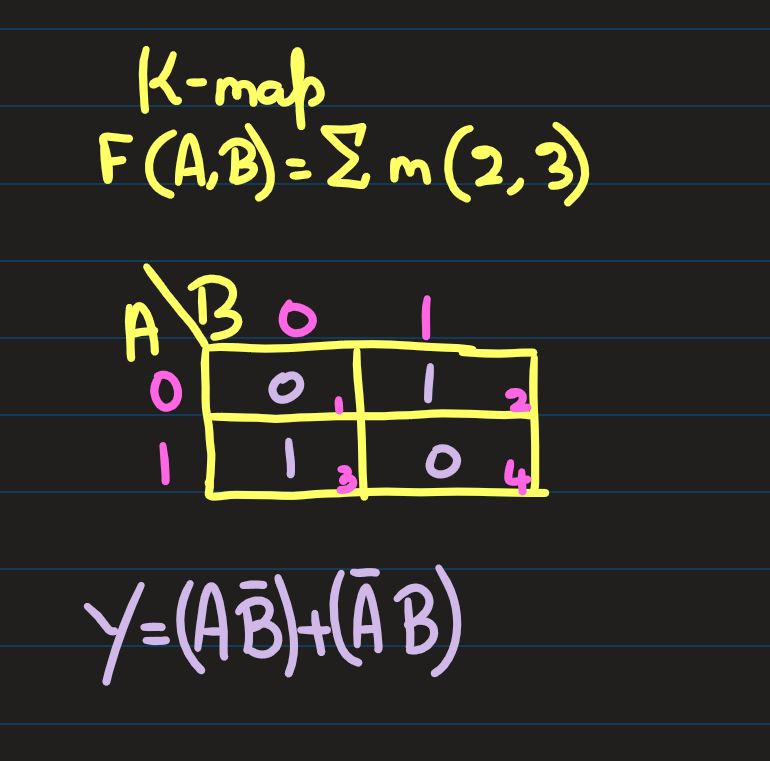 K-map
F(A,B)=Σ m(2,3)
A \ B 0 1
0 0 1 1 2
1 1 3 0 4
Y=(AB̅)+(A̅B)